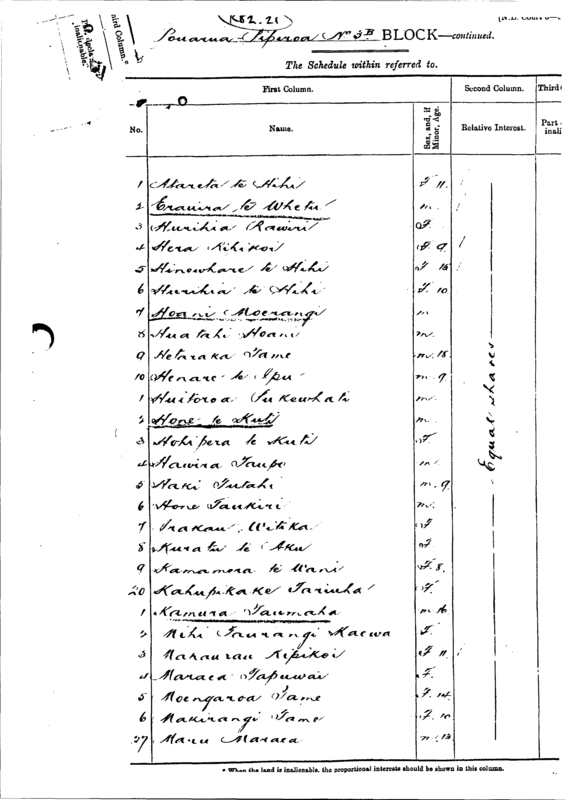 (K52.21)
Pouarua Piperoa No 3B BLOCK—continued.
The Schedule within referred to.
First Column. Second Column. Third
No. Name. Sex, and, if Minor, Age. Relative Interest. Part inali
1 Atareta te Hihi F 11.
2 Erauira te Whetu m.
3 Hurihia Rawiri F.
4 Hera Kihikoi F 9.
5 Hinewhare te Hihi F 15
6 Hurihia te Hihi F. 10
7 Hoani Moerangi m
8 Huatahi Hoani m.
9 Hetaraka Tame m. 18.
10 Henare te Ipu m. 9.
1 Huitoroa Pukewhati m.
2 Hone te Kuti m.
3 Hohipera te Kuti F
4 Hawira Taupe m.
5 Haki Tutahi m. 9.
6 Hone Taukiri m.
7 Irakau Witika F
8 Kuratu te Aku F
9 Kamamera te Wani F. 8.
20 Kahupikake Tariuha F.
1 Kamura Taumaha m. 16.
2 Mihi Taurangi Kaewa F.
3 Makaurau Kipikoi F 11.
4 Maraea Tapuwai F.
5 Moengaroa Tame F. 14.
6 Makirangi Tame F. 10
27 Maru Maraea m. 13
Equal shares
* When the land is inalienable, the proportional interests should be shown in this column.